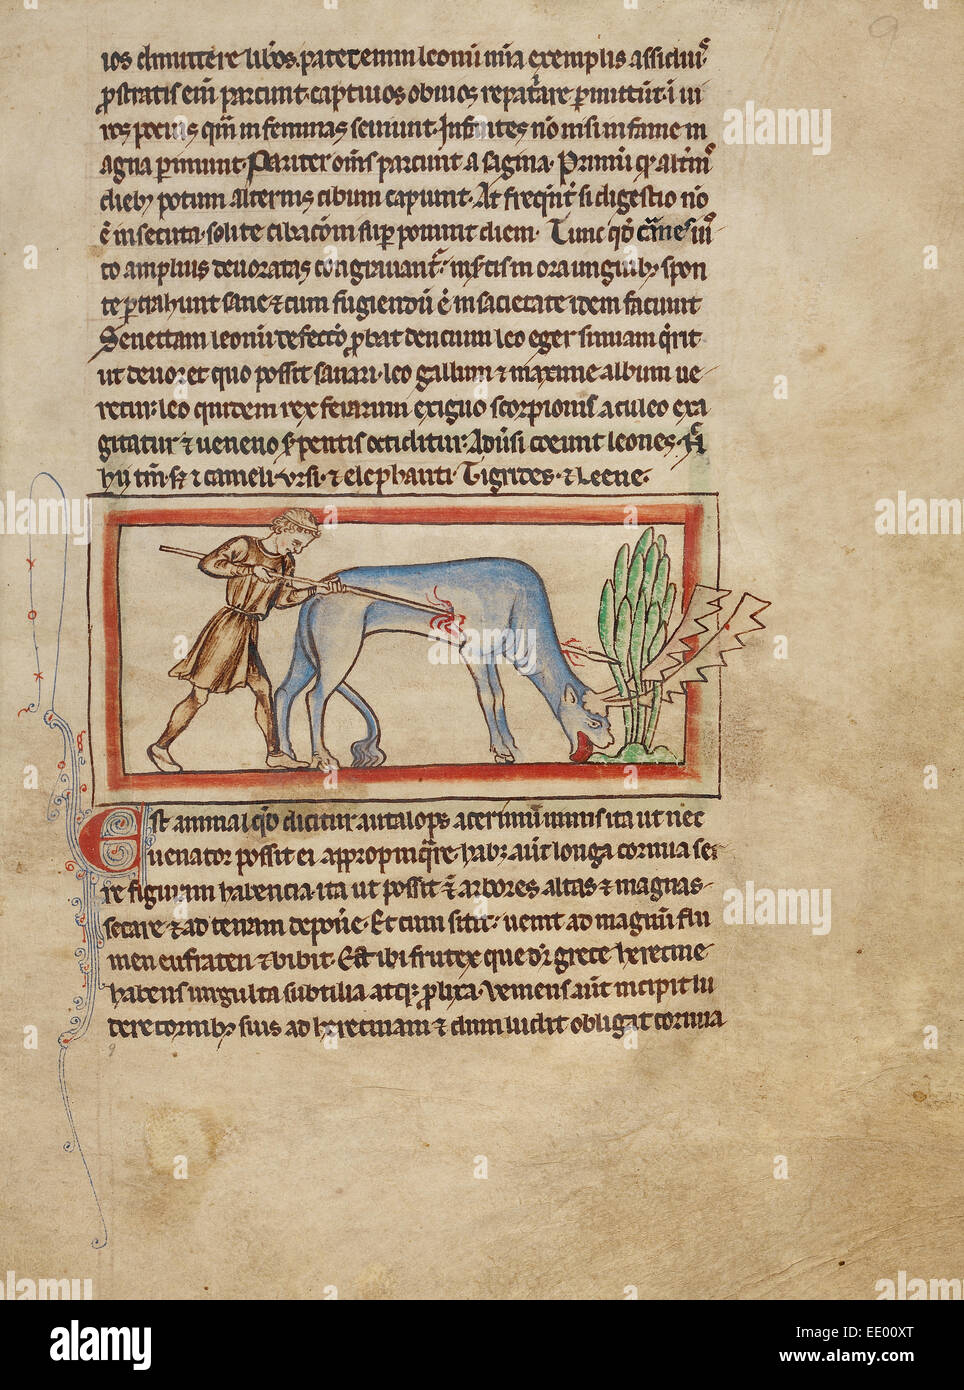 9
ios dimittere liberos. patet enim leonum misericordia exemplis assiduis.
prostratis enim parcunt. captivos obvios repatriare permittunt. in vi
ros potius quam in feminas seviunt. Infantes non nisi in fame m
agna perimunt. Pariter omnes parcunt a sagina. Primum quod alternis
diebus potum alternis cibum capiunt. At frequenter si digestio non
est insecuta. solite cibationi superponunt diem. Tunc quod carnes ius
to amplius devoratas cum gravantur. insertis in ora unguibus spon
te pertrahunt. sane et cum fugiendum est in sacietate idem faciunt
Senectam leonum defectio probat dencium leo eger simiam querit
ut devoret quo possit sanari. leo gallum et maxime album ve-
retur. leo quidem rex ferarum exiguo scorpionis aculeo exa
gitatur et veneno serpentis occiditur. Adversi coeunt leones.
hii tantum. sed et cameli. ursi. et elephanti. Tigrides. et leene.
Est animal quod dicitur autalops acerrimum nimis ita ut nec
venator possit ei appropinquare. habet autem longa cornua ser
re figuram habencia. ita ut possit etiam arbores altas et magnas
secare. et ad terram deponere. Et cum sitit. venit ad magnum flu
men eufraten et bibit. Est autem ibi frutex que dicitur grece herecine
habens virgulta subtilia atque prolixa. Veniens autem incipit lu
dere cornibus suis ad herecinam et dum ludit obligat cornua
9
alamy
alamy stock photo
EE00XT
www.alamy.com